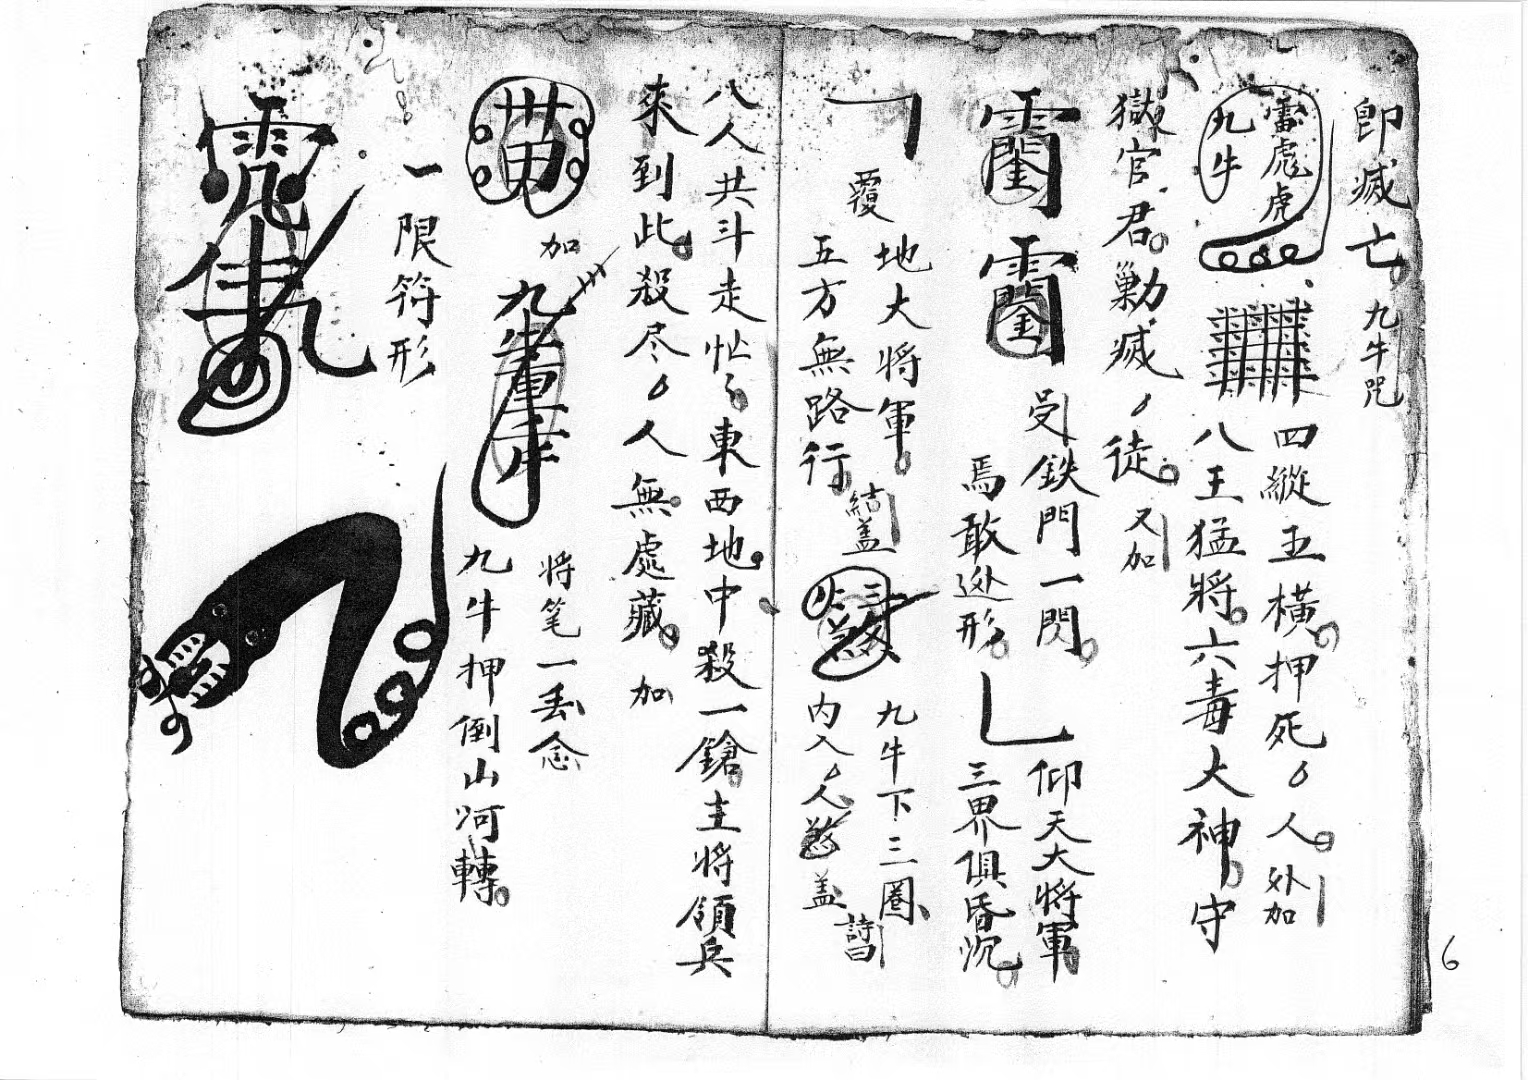 即滅亡 九牛咒
雷彪虎
九牛
四縱五橫押死 人 外加
八王猛將六毒大神守
獄官君勦滅 徒 又加
受鉄門一閃
焉敢逊形
仰天大將軍
三界俱昏沉
覆
地大將軍
五方無路行
結蓋
九牛下三圈
內人 人煞蓋
詩曰
八人共斗走忙忙東西地中殺一鎗主將領兵
來到此殺尽 人無處藏 加
加
將笔一丢念
九牛押倒山河轉
一限符形
6